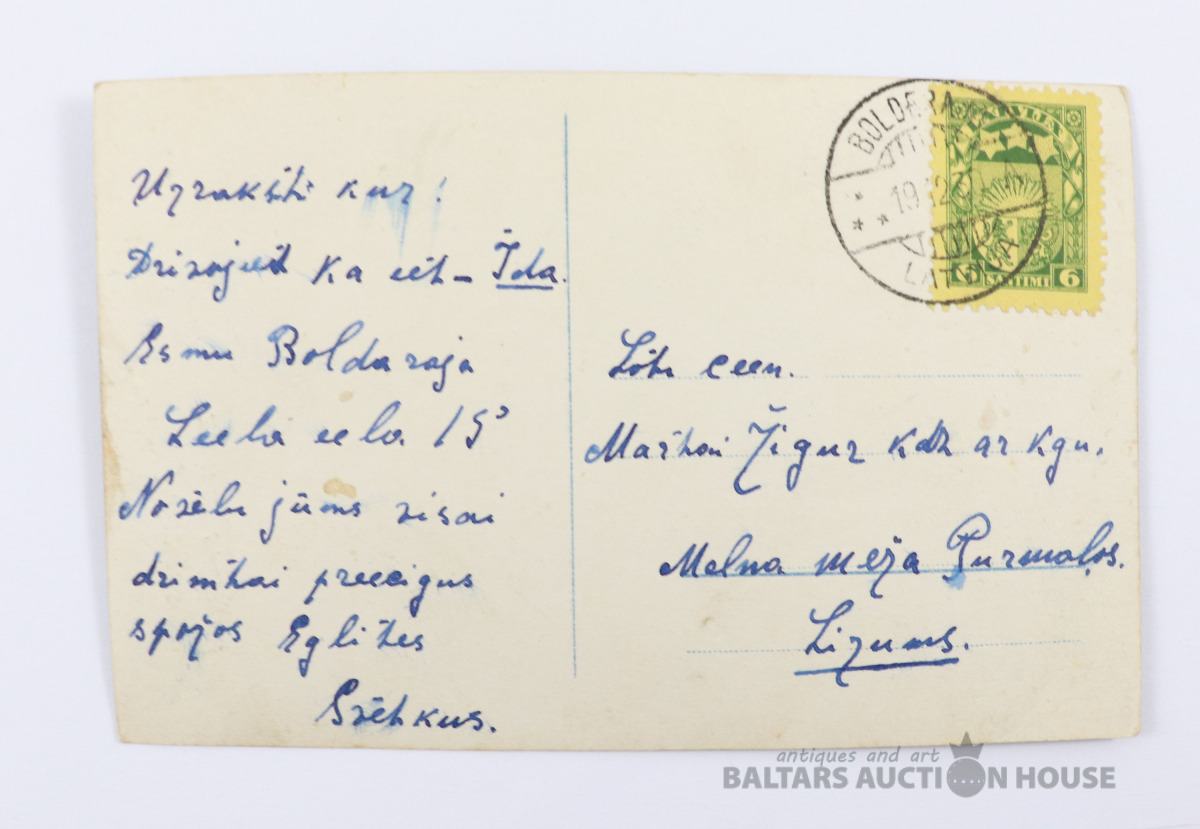 Uzrakstit kur!
Dzivojiet Ka iet – Ida.
Esmu Boldaraja
Leela eela 15
Novēlu jūms visai
dzimtai preecigus
spožos Eglites
Svētkus.
BOLDERAJA
19 12
LATVIJA
LATVIJA
6 SANTIMI 6
Ļoti ceen.
Martai Žigur kdz ar kgu.
Melna meža Purmaļos.
Lizums.
antiques and art
BALTARS AUCTION HOUSE